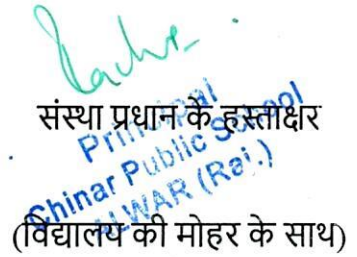 संस्था प्रधान के हस्ताक्षर
Principal
Chinar Public School
ALWAR (Raj.)
(विद्यालय की मोहर के साथ)